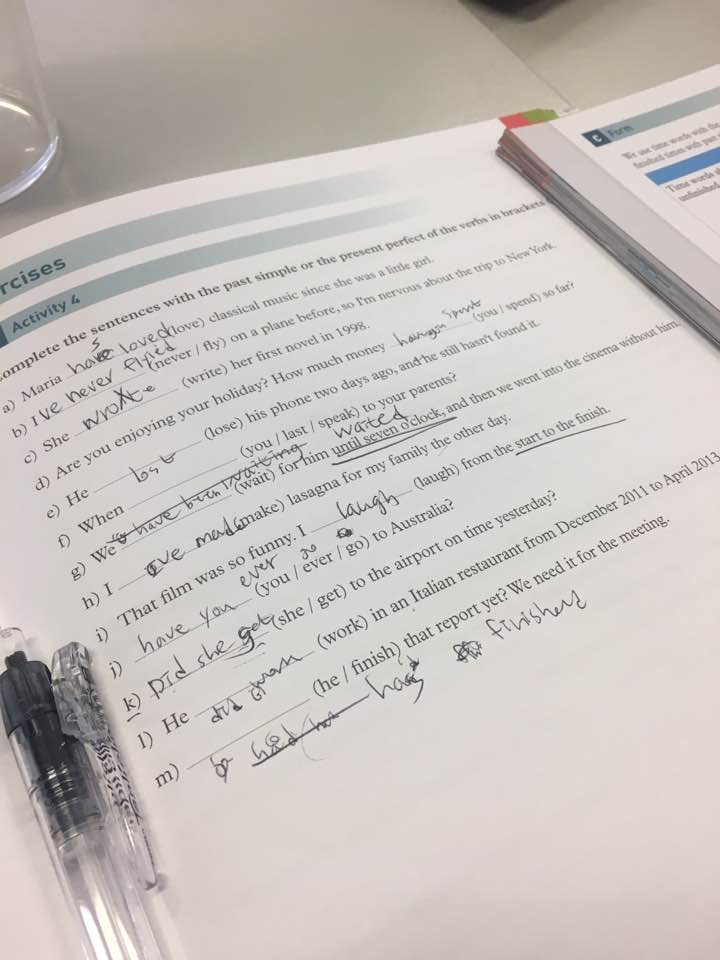 rcises
Activity 4
omplete the sentences with the past simple or the present perfect of the verbs in brackets
a) Maria has loved (love) classical music since she was a little girl.
b) I've never flyied (never / fly) on a plane before, so I'm nervous about the trip to New York.
c) She wrote (write) her first novel in 1998.
d) Are you enjoying your holiday? How much money spent (you / spend) so far?
e) He lost (lose) his phone two days ago, and he still hasn't found it.
f) When (you / last / speak) to your parents?
g) We have been waiting waited (wait) for him until seven o'clock, and then we went into the cinema without him.
h) I made (make) lasagna for my family the other day.
i) That film was so funny. I laugh (laugh) from the start to the finish.
j) have you ever go (you / ever / go) to Australia?
k) Did she get (she / get) to the airport on time yesterday?
l) He did (work) in an Italian restaurant from December 2011 to April 2013
m) (he / finish) that report yet? We need it for the meeting.
has finished
C Form
We use time words with the
finished times with past
Time words
unfinished